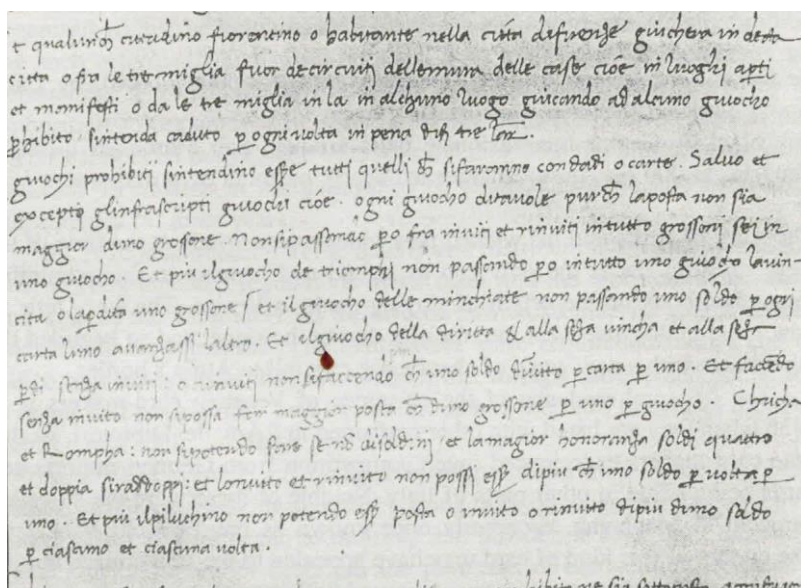 Et qualunch cittadino fiorentino o habitante nella citta di firenze giuchera in decta
citta o fra le tre miglia fuor de circuiti delle mura delle case cioe in luoghi apti
et manifesti o da le tre miglia in la in alchuno luogo giucando ad alcuno giuocho
phibito sintenda caduto p ogni volta in pena di tre
giuochi prohibiti sintendino esse tutti quelli ch si faranno con dadi o carte. Salvo et
excepto glinfrascripti giuochi cioe. ogni giuocho di tavole purch la posta non sia
maggior duno grossone. Non si passando po fra inviti et rinviti in tutto grossoni sei in
uno giuocho. Et piu il giuocho de triomphi non passando po in tutto uno giuocho la vin
cita o la pdita uno grossone / et il giuocho delle minchiate non passando uno soldo p ogni
carta luno avanzassi laltro. Et il giuocho della diritta alla seza vincha et alla seza
pdi senza inviti: o rinviti non si faccendo ch uno soldo dinvito p carta p uno. Et facedo
senza invito non si possa maggior posta ch duno grossone p uno p giuocho. Chricha
et Rompha: non si potendo fare se no di soldi iij et la magior honoranza soldi quattro
et doppia si raddoppi: et lonvito et rinvito non possi esse di piu ch uno soldo p volta p
uno. Et piu il piluchino non potendo esse posta o invito o rinvito di piu duno soldo
p ciascuno et ciascuna volta.